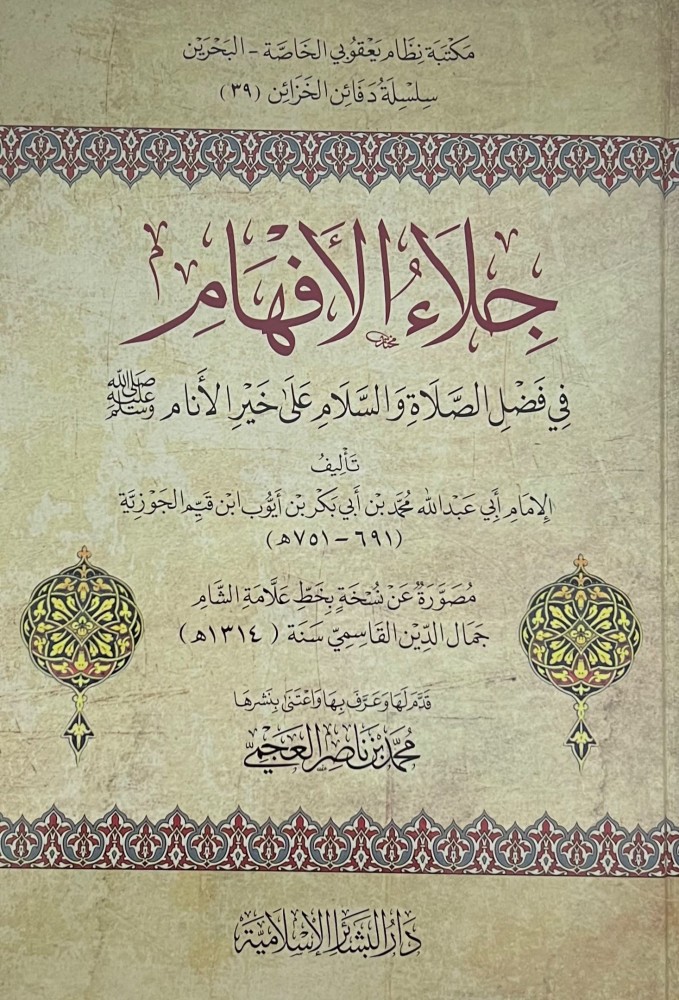 مَكتَبَة نِظَام يَعْقُوبي الخَاصَّة - البَحْرَين
سِلسِلَة دَفَائِن الخَزَائِن (٣٩)
جِلَاءُ الأَفْهَامِ
فِي فَضْلِ الصَّلَاةِ وَالسَّلَامِ عَلَىٰ خَيْرِ الأَنَامِ ﷺ
تَأْلِيفُ
الإِمَامِ أَبِي عَبْدِ اللّٰه مُحَمَّد بْن أَبِي بَكْر بْن أَيُّوب ابْن قَيِّم الجَوْزِيَّة
(٦٩١ - ٧٥١ هـ)
مُصَوَّرَةٌ عَنْ نُسْخَةٍ بِخَطِّ عَلَّامَةِ الشَّام
جَمَال الدِّين القَاسِمِيّ سَنَة (١٣١٤ هـ)
قَدَّمَ لَهَا وَعَرَّفَ بِهَا وَاعْتَنَىٰ بِنَشْرِهَا
مُحَمَّد بْن نَاصِر العَجْمِيّ
دَارُ البَشَائِرِ الإِسْلَامِيَّة